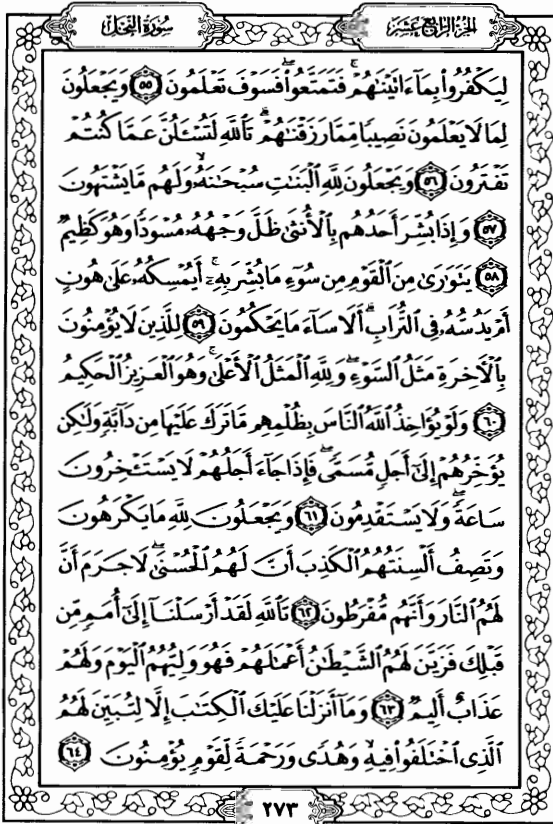 الجزء الرابع عشر
سورة النحل
لِيَكْفُرُوا۟ بِمَآ ءَاتَيْنَٰهُمْ ۚ فَتَمَتَّعُوا۟ ۖ فَسَوْفَ تَعْلَمُونَ ٥٥ وَيَجْعَلُونَ
لِمَا لَا يَعْلَمُونَ نَصِيبًا مِّمَّا رَزَقْنَٰهُمْ ۗ تَٱللَّهِ لَتُسْـَٔلُنَّ عَمَّا كُنتُمْ
تَفْتَرُونَ ٥٦ وَيَجْعَلُونَ لِلَّهِ ٱلْبَنَٰتِ سُبْحَٰنَهُۥ ۙ وَلَهُم مَّا يَشْتَهُونَ
٥٧ وَإِذَا بُشِّرَ أَحَدُهُم بِٱلْأُنثَىٰ ظَلَّ وَجْهُهُۥ مُسْوَدًّا وَهُوَ كَظِيمٌ
٥٨ يَتَوَٰرَىٰ مِنَ ٱلْقَوْمِ مِن سُوٓءِ مَا بُشِّرَ بِهِۦٓ ۚ أَيُمْسِكُهُۥ عَلَىٰ هُونٍ
أَمْ يَدُسُّهُۥ فِى ٱلتُّرَابِ ۗ أَلَا سَآءَ مَا يَحْكُمُونَ ٥٩ لِلَّذِينَ لَا يُؤْمِنُونَ
بِٱلْءَاخِرَةِ مَثَلُ ٱلسَّوْءِ ۖ وَلِلَّهِ ٱلْمَثَلُ ٱلْأَعْلَىٰ ۚ وَهُوَ ٱلْعَزِيزُ ٱلْحَكِيمُ
٦٠ وَلَوْ يُؤَاخِذُ ٱللَّهُ ٱلنَّاسَ بِظُلْمِهِم مَّا تَرَكَ عَلَيْهَا مِن دَآبَّةٍ وَلَٰكِن
يُؤَخِّرُهُمْ إِلَىٰٓ أَجَلٍ مُّسَمًّى ۖ فَإِذَا جَآءَ أَجَلُهُمْ لَا يَسْتَـْٔخِرُونَ
سَاعَةً ۖ وَلَا يَسْتَقْدِمُونَ ٦١ وَيَجْعَلُونَ لِلَّهِ مَا يَكْرَهُونَ
وَتَصِفُ أَلْسِنَتُهُمُ ٱلْكَذِبَ أَنَّ لَهُمُ ٱلْحُسْنَىٰ ۖ لَا جَرَمَ أَنَّ
لَهُمُ ٱلنَّارَ وَأَنَّهُم مُّفْرَطُونَ ٦٢ تَٱللَّهِ لَقَدْ أَرْسَلْنَآ إِلَىٰٓ أُمَمٍ مِّن
قَبْلِكَ فَزَيَّنَ لَهُمُ ٱلشَّيْطَٰنُ أَعْمَٰلَهُمْ فَهُوَ وَلِيُّهُمُ ٱلْيَوْمَ وَلَهُمْ
عَذَابٌ أَلِيمٌ ٦٣ وَمَآ أَنزَلْنَا عَلَيْكَ ٱلْكِتَٰبَ إِلَّا لِتُبَيِّنَ لَهُمُ
ٱلَّذِى ٱخْتَلَفُوا۟ فِيهِ ۙ وَهُدًى وَرَحْمَةً لِّقَوْمٍ يُؤْمِنُونَ ٦٤
٢٧٣